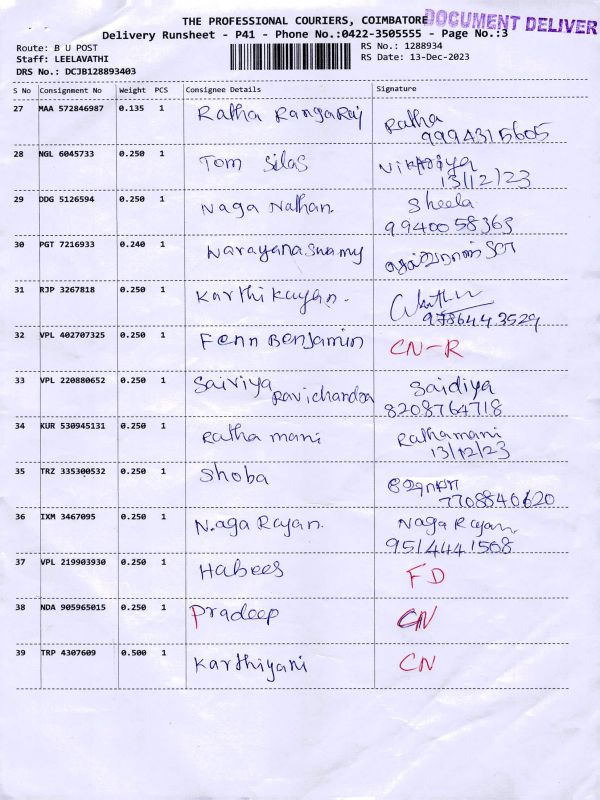 THE PROFESSIONAL COURIERS, COIMBATORE
DOCUMENT DELIVER
Delivery Runsheet - P41 - Phone No.:0422-3505555 - Page No.:3
Route: B U POST
RS No.: 1288934
Staff: LEELAVATHI
RS Date: 13-Dec-2023
DRS No.: DCJB128893403
S No Consignment No Weight PCS Consignee Details Signature
27 MAA 572846987 0.135 1 Ratha Rangaraj Ratha
9994315605
28 NGL 6045733 0.250 1 Tom Silas
13/12/23
29 DDG 5126594 0.250 1 Naga Nathan. Sheela
9940058363
30 PGT 7216933 0.240 1 Narayanaswamy
31 RJP 3267818 0.250 1 Karthikayan.
9786443529
32 VPL 402707325 0.250 1 Fenn Benjamin CN-R
33 VPL 220880652 0.250 1 Saiviya Ravichandra Saidiya
8208764718
34 KUR 530945131 0.250 1 Ratha mani Rathamani
13/12/23
35 TRZ 335300532 0.250 1 Shoba
7708840620
36 IXM 3467095 0.250 1 N.aga Rajan. Naga Rajan.
9514441568
37 VPL 219903930 0.250 1 Habees FD
38 NDA 905965015 0.250 1 Pradeep CN
39 TRP 4307609 0.500 1 Karthiyani CN